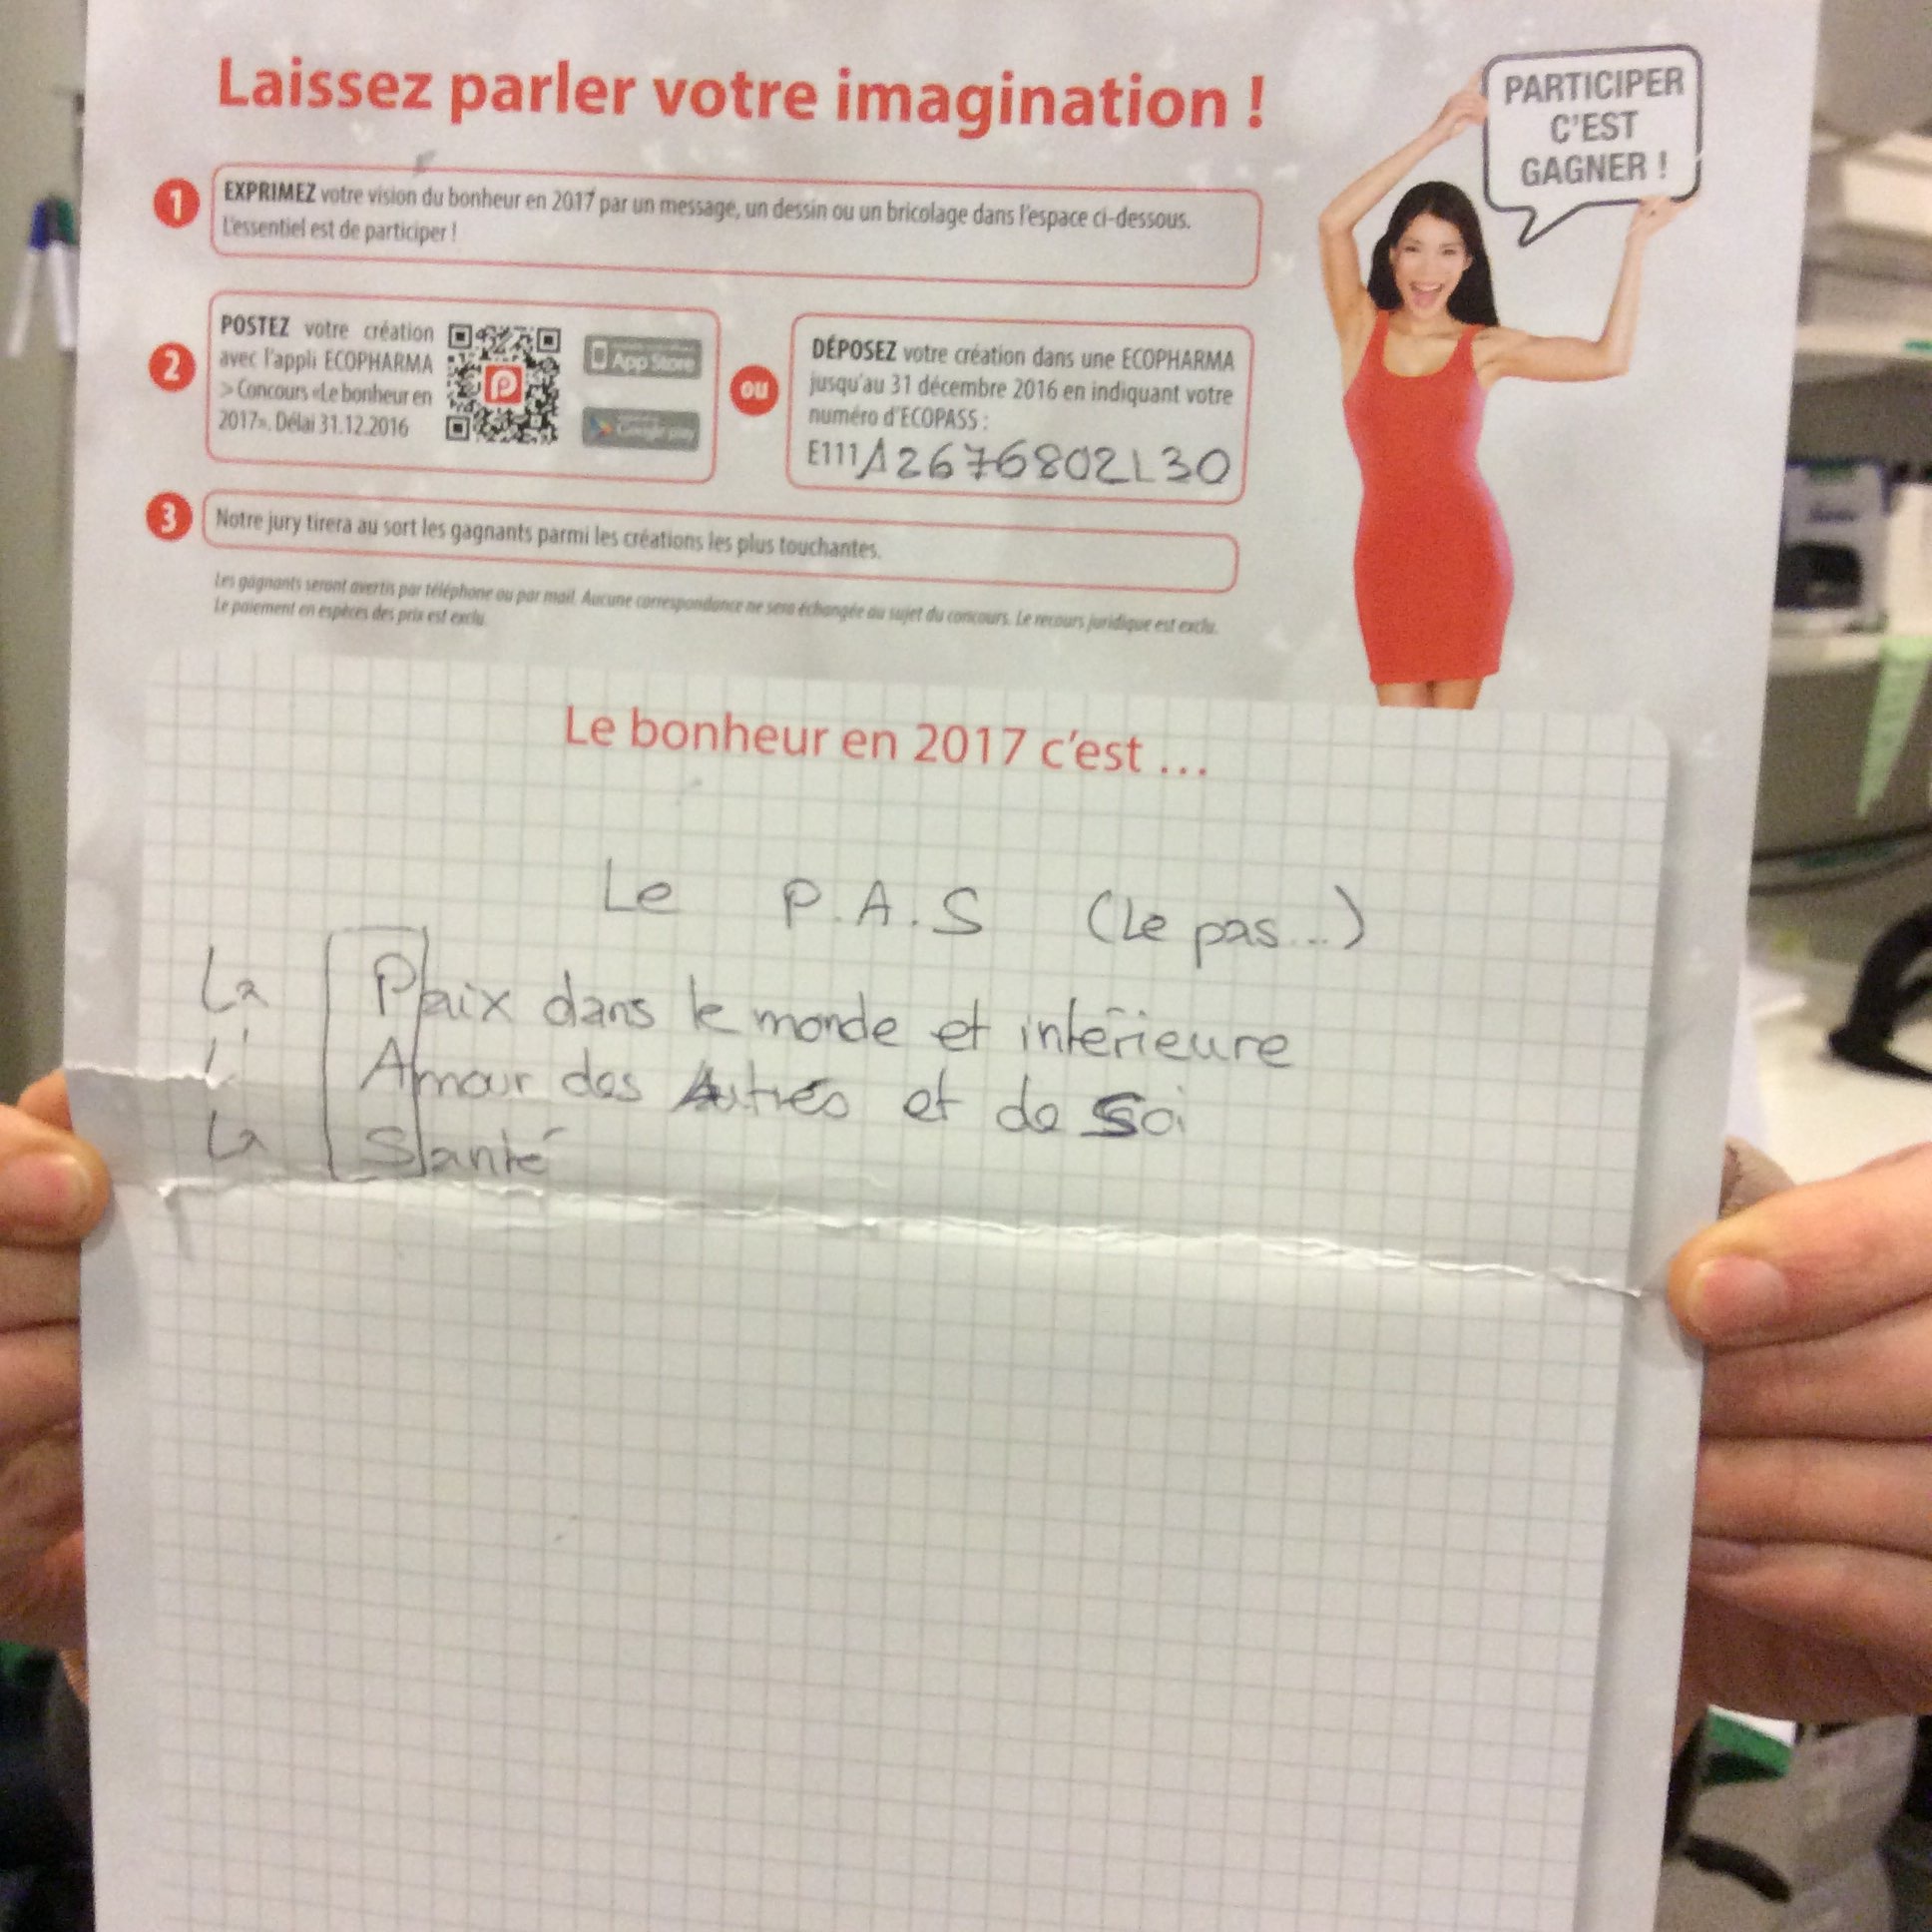 Laissez parler votre imagination !
PARTICIPER
C'EST
GAGNER !
1
EXPRIMEZ votre vision du bonheur en 2017 par un message, un dessin ou un bricolage dans l'espace ci-dessous.
L'essentiel est de participer !
2
POSTEZ votre création
avec l'appli ECOPHARMA
> Concours «Le bonheur en
2017». Délai 31.12.2016
App Store
Google play
ou
DÉPOSEZ votre création dans une ECOPHARMA
jusqu'au 31 décembre 2016 en indiquant votre
numéro d'ECOPASS :
E111 12676802130
3
Notre jury tirera au sort les gagnants parmi les créations les plus touchantes.
Les gagnants seront avertis par téléphone ou par mail. Aucune correspondance ne sera échangée au sujet du concours. Le recours juridique est exclu.
Le paiement en espèces des prix est exclu.
Le bonheur en 2017 c'est ...
Le P.A.S (Le pas...)
La Paix dans le monde et intérieure
L' Amour des Autres et de Soi
La Santé